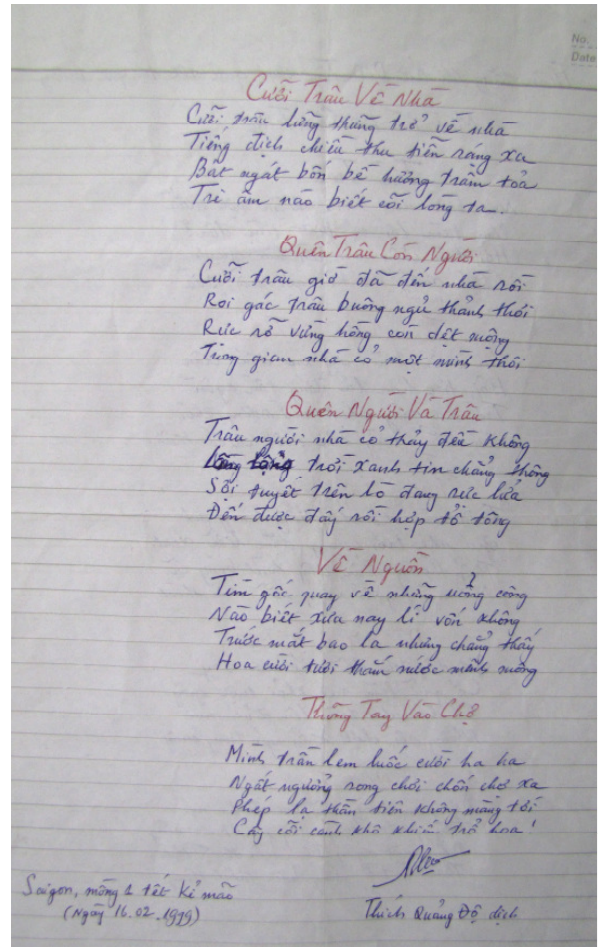 No.
Date
Cưỡi Trâu Về Nhà
Cưỡi trâu lững thững trở về nhà
Tiếng địch chiều thu tiễn ráng xa
Bát ngát bốn bề hương trầm tỏa
Tri âm nào biết cõi lòng ta.
Quên Trâu Còn Người
Cưỡi trâu giờ đã đến nhà rồi
Roi gác trâu buông ngủ thảnh thơi
Rực rỡ vừng hồng còn dệt mộng
Trong gian nhà cỏ một mình thôi
Quên Người Và Trâu
Trâu người nhà cỏ thảy đều không
lộng trời xanh tin chẳng thông
Sợi tuyết trên lò đang rực lửa
Đến được đấy rồi hợp tổ tông
Về Nguồn
Tìm gốc quay về những uổng công
Nào biết xưa nay lí vốn không
Trước mắt bao la nhưng chẳng thấy
Hoa cười tươi thắm nước mênh mông
Thõng Tay Vào Chợ
Mình trần lem luốc cười ha ha
Ngất ngưởng rong chơi chốn chợ xa
Phép lạ thần tiên không màng tới
Cây cỗi cành khô khiến trổ hoa!
Saigon, mồng 1 tết Kỉ mão
(Ngày 16.02.1999)
Thích Quảng Độ dịch